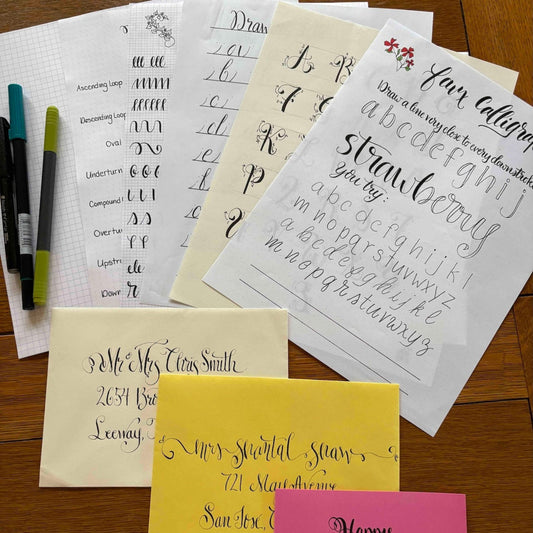 Ascending Loop
Descending Loop
Oval
Underturn
Compound
Overtu
Upstr
Down
Draw
A B
K
P
Faux Calligrap
Draw a line very close to every downstroke
abcdefghij
strawberry
You try:
abcdefghijkl
mnopqrstuvwxyz
abcdefghijkl
mnopqrstuvwxyz
Mr & Mrs Chris Smith
2654 Bro
Leeway,
Mrs Shantal Shaw
721 Avenue
San Jose,
Happy